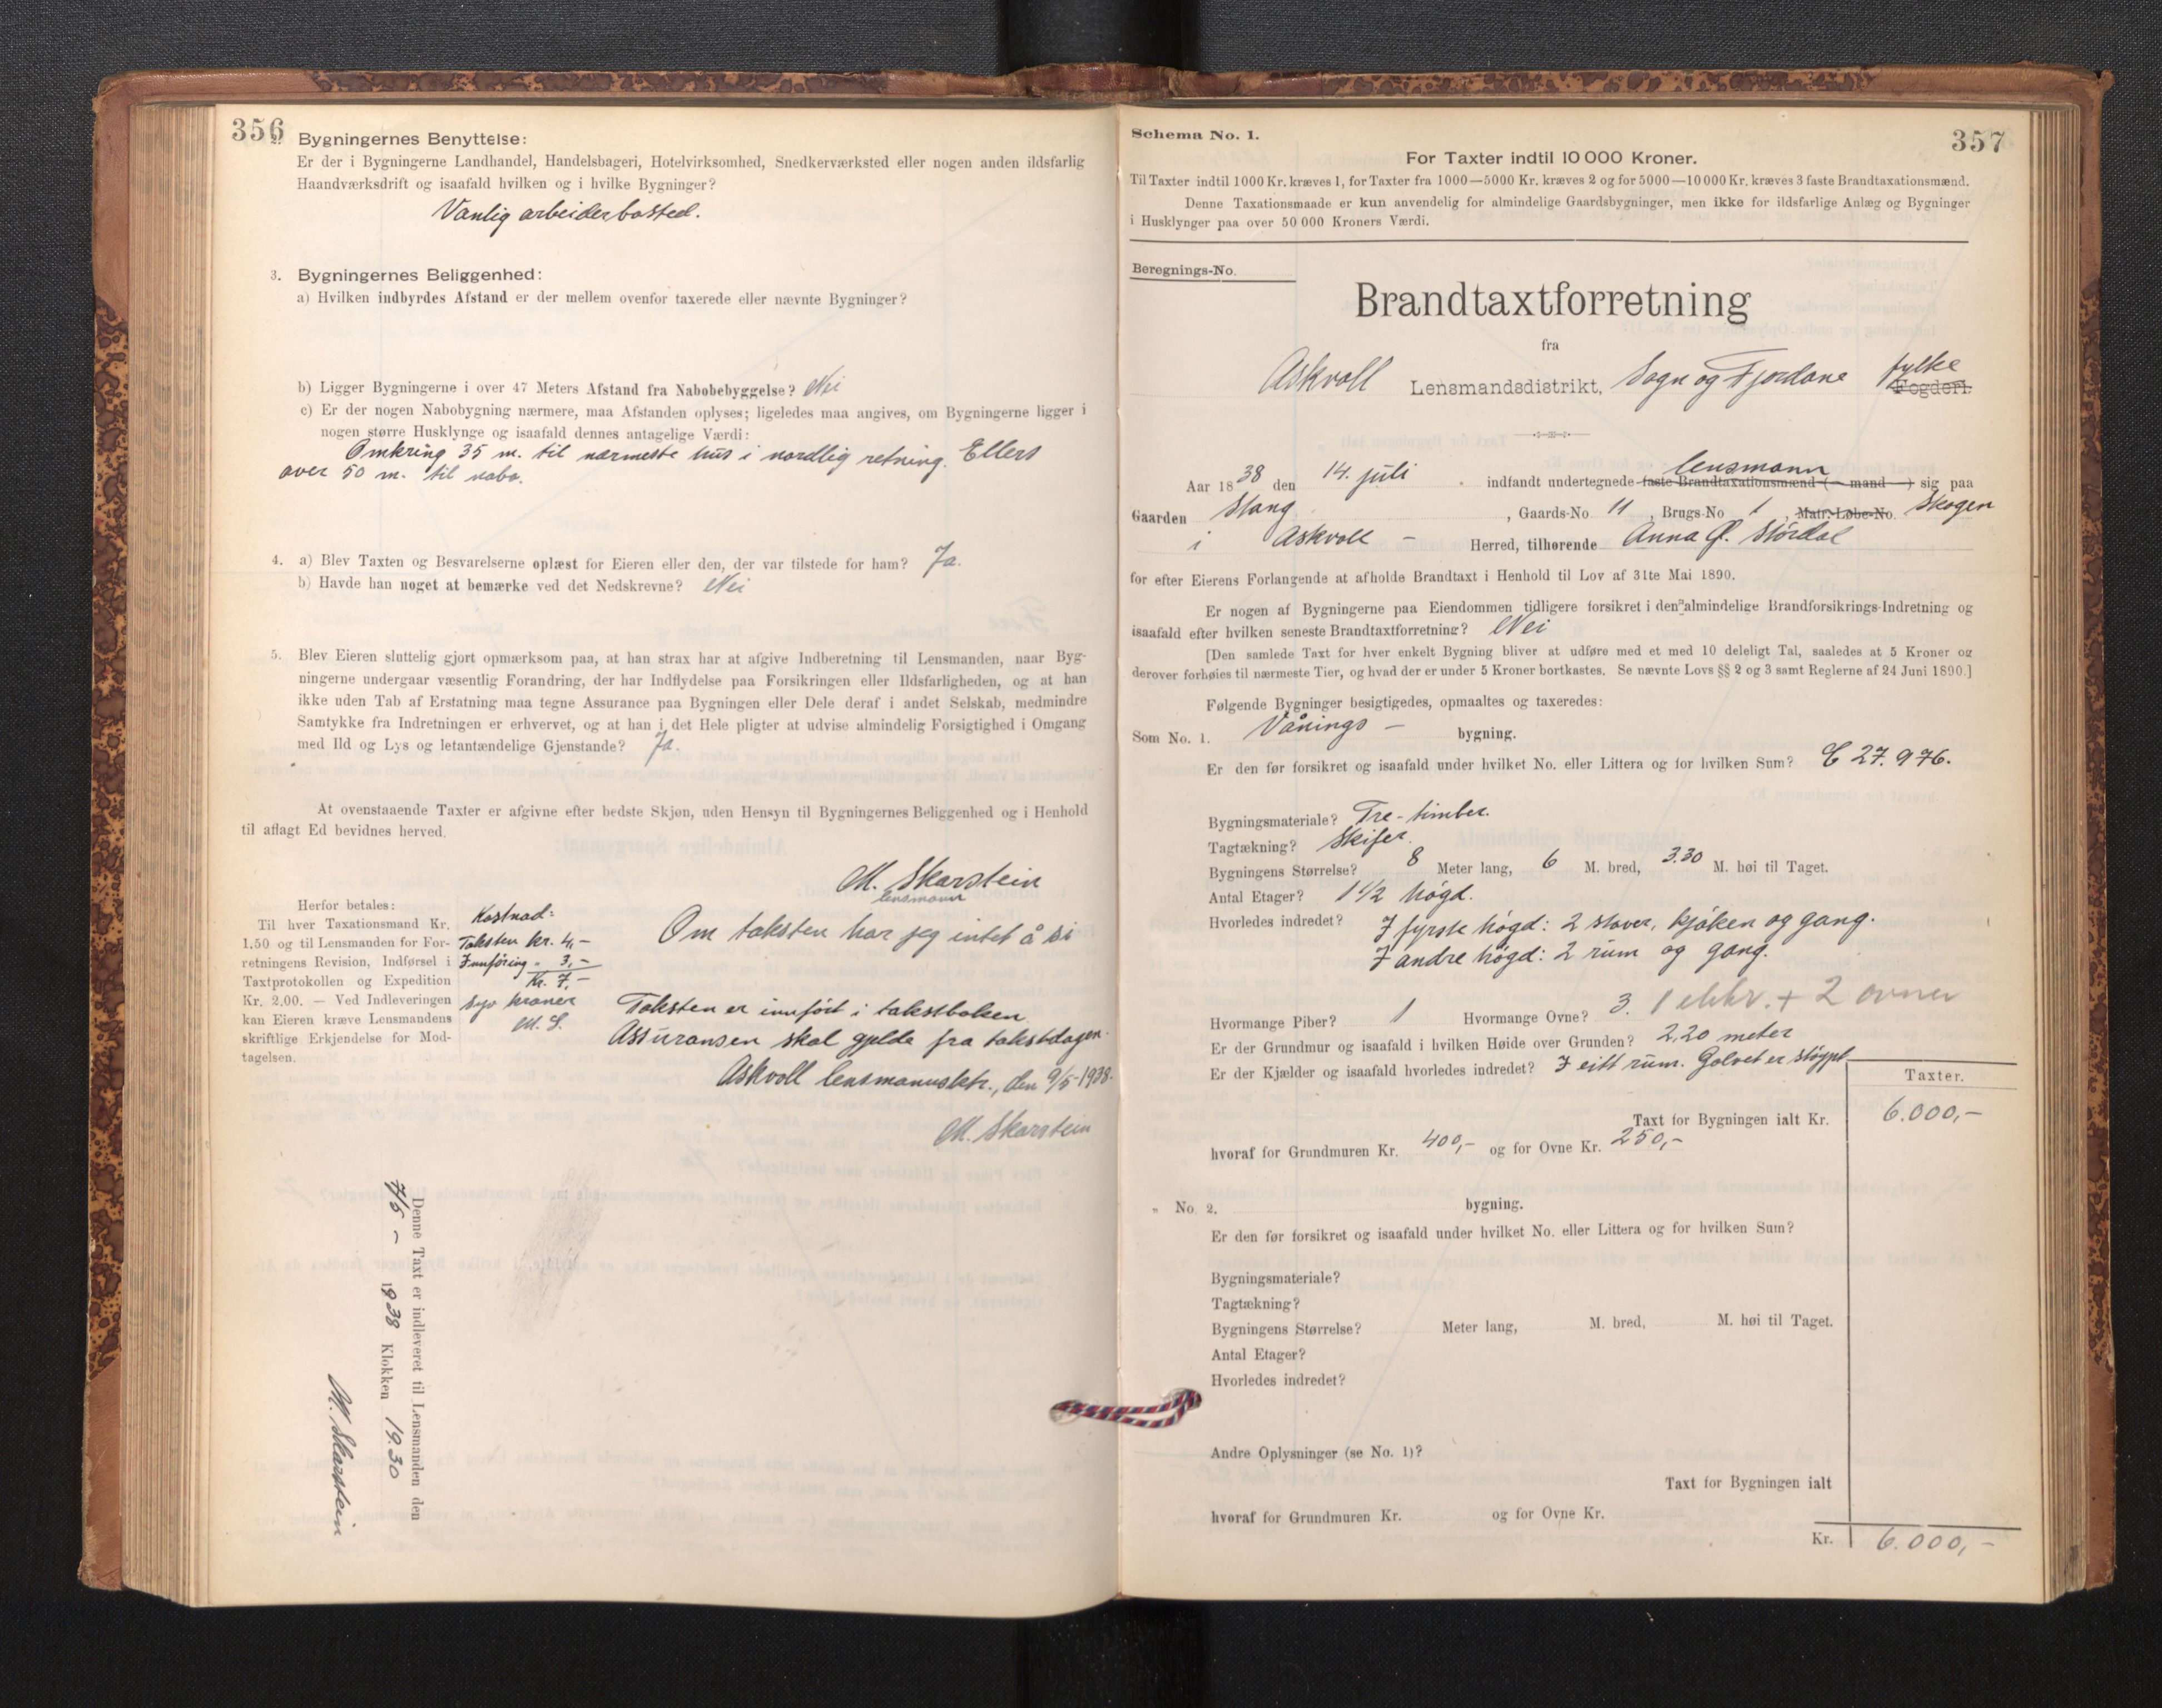 356
2. Bygningernes Benyttelse:
Er der i Bygningerne Landhandel, Handelsbageri, Hotelvirksomhed, Snedkerværksted eller nogen anden ildsfarlig
Haandværksdrift og isaafald hvilken og i hvilke Bygninger?
Vanlig arbeiderbosted.
3. Bygningernes Beliggenhed:
a) Hvilken indbyrdes Afstand er der mellem ovenfor taxerede eller nævnte Bygninger?
b) Ligger Bygningerne i over 47 Meters Afstand fra Nabobebyggelse? Nei
c) Er der nogen Nabobygning nærmere, maa Afstanden oplyses; ligeledes maa angives, om Bygningerne ligger i
nogen større Husklynge og isaafald dennes antagelige Værdi:
Omkring 35 m. til nærmeste hus i nordlig retning. Ellers
over 50 m. til nabo.
4. a) Blev Taxten og Besvarelserne oplæst for Eieren eller den, der var tilstede for ham? Ja.
b) Havde han noget at bemærke ved det Nedskrevne? Nei
5. Blev Eieren sluttelig gjort opmærksom paa, at han strax har at afgive Indberetning til Lensmanden, naar Byg-
ningerne undergaar væsentlig Forandring, der har Indflydelse paa Forsikringen eller Ildsfarligheden, og at han
ikke uden Tab af Erstatning maa tegne Assurance paa Bygningen eller Dele deraf i andet Selskab, medmindre
Samtykke fra Indretningen er erhvervet, og at han i det Hele pligter at udvise almindelig Forsigtighed i Omgang
med Ild og Lys og letantændelige Gjenstande? Ja.
At ovenstaaende Taxter er afgivne efter bedste Skjøn, uden Hensyn til Bygningernes Beliggenhed og i Henhold
til aflagt Ed bevidnes herved.
M. Skarstein
lensmann
Herfor betales:
Til hver Taxationsmand Kr.
1.50 og til Lensmanden for For-
retningens Revision, Indførsel i
Taxtprotokollen og Expedition
Kr. 2,00. — Ved Indleveringen
kan Eieren kræve Lensmandens
skriftlige Erkjendelse for Mod-
tagelsen.
Kostnad:
Taksten kr. 4,-
Innføring " 3,-
Kr. 7,-
Syv kroner
M. S.
Om taksten har jeg intet å si
Taksten er innført i takstboken.
Assuransen skal gjelde fra takstdagen.
Askvoll lensmannsktr., den 9/5-1938.
M. Skarstein
Denne Taxt er indleveret til Lensmanden den
7/5 - 1938 Klokken 19.30
M. Skarstein
357
Schema No. 1.
For Taxter indtil 10 000 Kroner.
Til Taxter indtil 1000 Kr. kræves 1, for Taxter fra 1000—5000 Kr. kræves 2 og for 5000—10 000 Kr. kræves 3 faste Brandtaxationsmænd.
Denne Taxationsmaade er kun anvendelig for almindelige Gaardsbygninger, men ikke for ildsfarlige Anlæg og Bygninger
i Husklynger paa over 50 000 Kroners Værdi.
Beregnings-No.
Brandtaxtforretning
fra
Askvoll Lensmandsdistrikt, Sogn og Fjordane fylke Fogderi.
Aar 1838 den 14. juli indfandt undertegnede lensmann faste Brandtaxationsmænd (- mand -) sig paa
Gaarden Stang, Gaards-No 11, Brugs-No 1, Matr.-Løbe-No. Skogen
i Askvoll - Herred, tilhørende Anna Ø. Stördal
for efter Eierens Forlangende at afholde Brandtaxt i Henhold til Lov af 31te Mai 1890.
Er nogen af Bygningerne paa Eiendommen tidligere forsikret i den almindelige Brandforsikrings-Indretning og
isaafald efter hvilken seneste Brandtaxtforretning? Nei
[Den samlede Taxt for hver enkelt Bygning bliver at udføre med et med 10 deleligt Tal, saaledes at 5 Kroner og
derover forhøies til nærmeste Tier, og hvad der er under 5 Kroner bortkastes. Se nævnte Lovs §§ 2 og 3 samt Reglerne af 24 Juni 1890.]
Følgende Bygninger besigtigedes, opmaaltes og taxeredes:
Som No. 1. Vånings - bygning.
Er den før forsikret og isaafald under hvilket No. eller Littera og for hvilken Sum? C 27.976.
Bygningsmateriale? Tre - timber.
Tagtækning? Skifer.
Bygningens Størrelse? 8 Meter lang, 6 M. bred, 3.30 M. høi til Taget.
Antal Etager? 1 1/2 högd.
Hvorledes indredet? I fyrste högd: 2 stover, kjöken og gang.
I andre högd: 2 rum og gang.
Hvormange Piber? 1 Hvormange Ovne? 3. 1 elektr. + 2 ovner
Er der Grundmur og isaafald i hvilken Høide over Grunden? 2,20 meter
Er der Kjælder og isaafald hvorledes indredet? I eitt rum. Golvet er stöypt
Taxter.
Taxt for Bygningen ialt Kr. 6.000,-
hvoraf for Grundmuren Kr. 400,- og for Ovne Kr. 250,-
" No. 2. bygning.
Er den før forsikret og isaafald under hvilket No. eller Littera og for hvilken Sum?
Bygningsmateriale?
Tagtækning?
Bygningens Størrelse? Meter lang, M. bred, M. høi til Taget.
Antal Etager?
Hvorledes indredet?
Andre Oplysninger (se No. 1)?
Taxt for Bygningen ialt
hvoraf for Grundmuren Kr. og for Ovne Kr.
Kr. 6.000,-